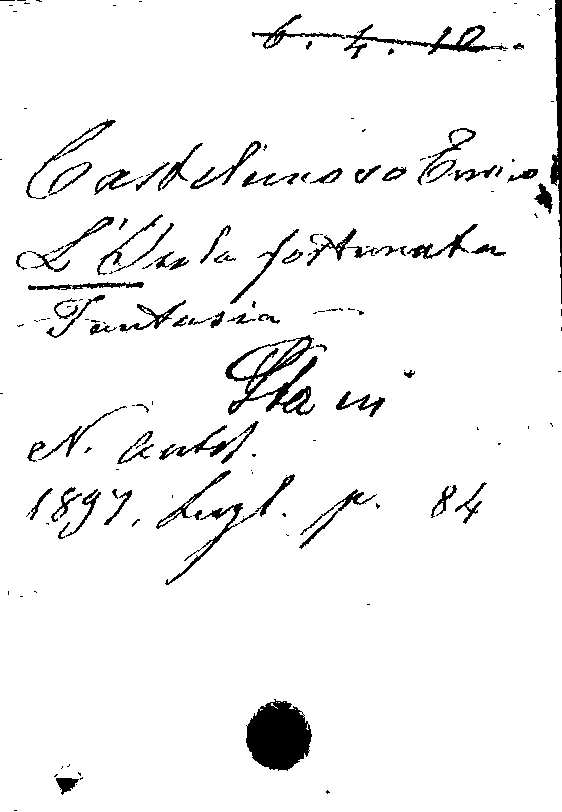 6. 4. 12.
Castelnuovo Enrico
L'Isola fortunata
- Fantasia -
Sta in
N. Antol.
1897, Lugl. p. 84